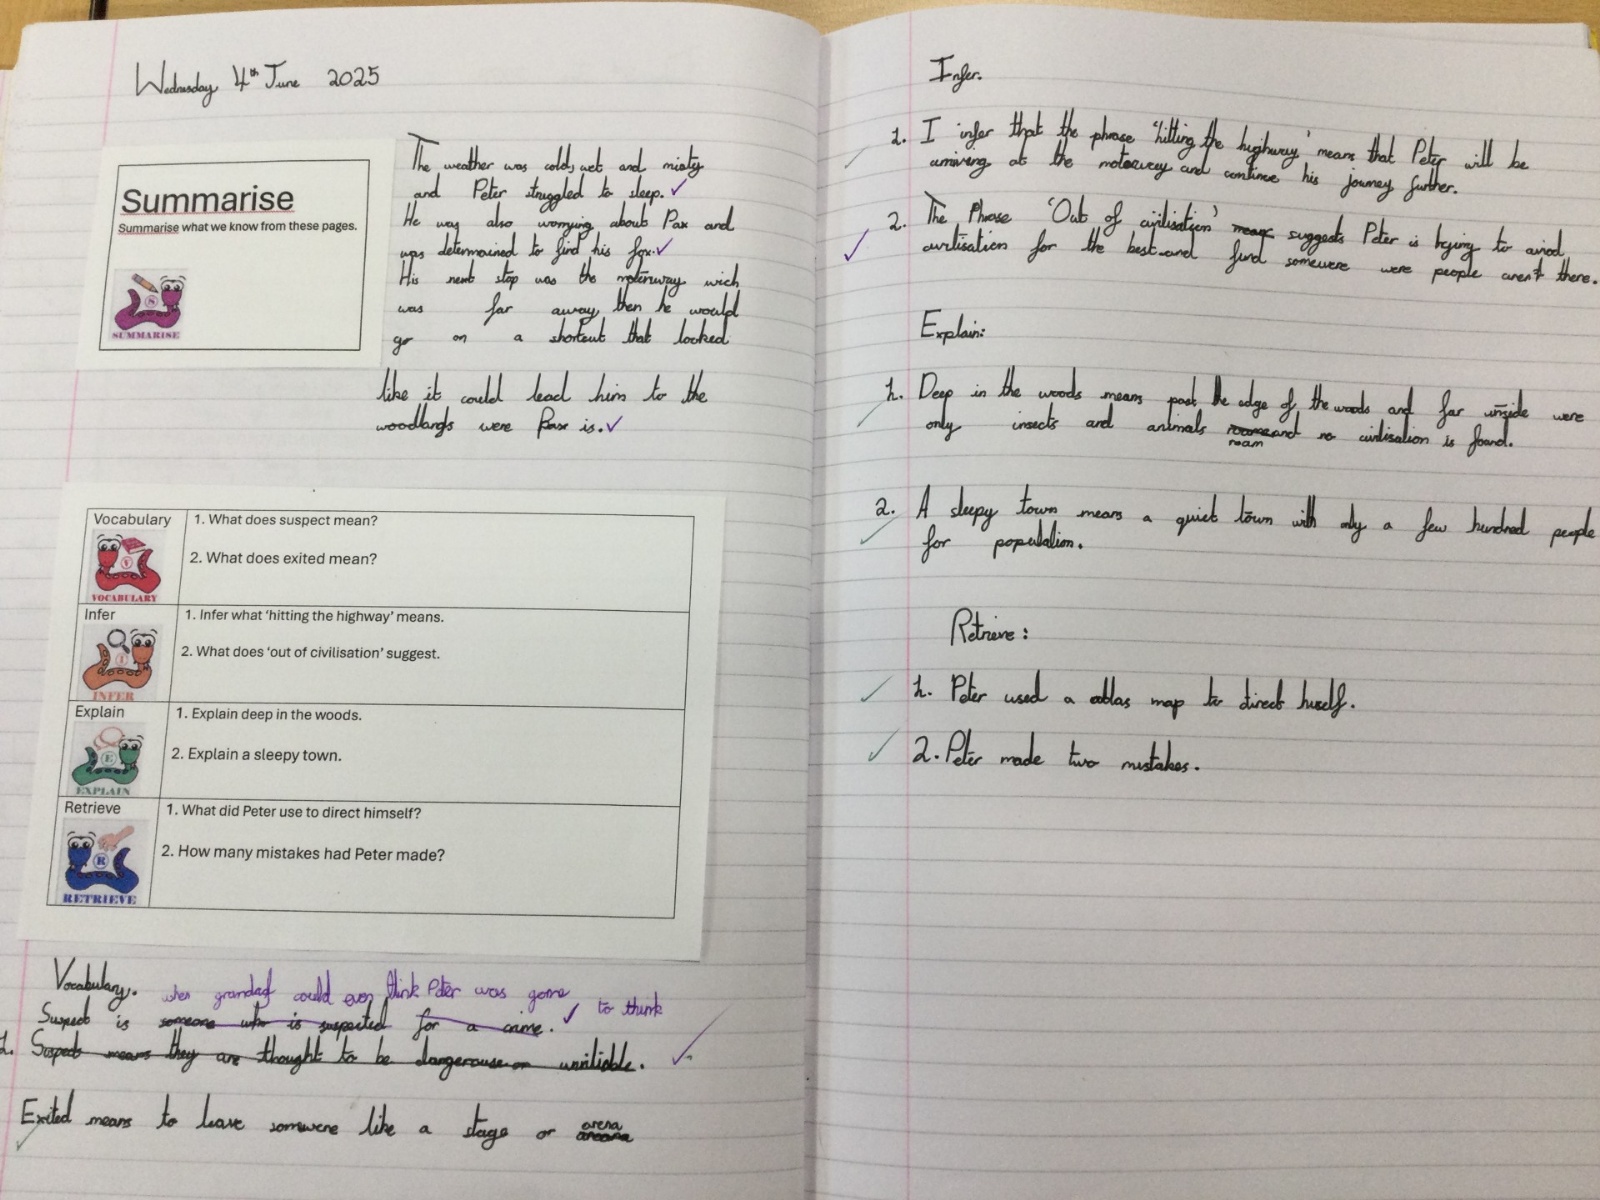 Wednesday 4th June 2025
Summarise
Summarise what we know from these pages.
SUMMARISE
The weather was cold, wet and misty
and Peter struggled to sleep. ✓
He was also worrying about Pax and
was determained to find his fox. ✓
His next stop was the moterway wich
was far away, then he would
go on a shortcut that looked
like it could lead him to the
woodlands were Pax is. ✓
Vocabulary
1. What does suspect mean?
2. What does exited mean?
VOCABULARY
Infer
1. Infer what ‘hitting the highway’ means.
2. What does ‘out of civilisation’ suggest.
INFER
Explain
1. Explain deep in the woods.
2. Explain a sleepy town.
EXPLAIN
Retrieve
1. What did Peter use to direct himself?
2. How many mistakes had Peter made?
RETRIEVE
Vocabulary.
when grandad could even think Peter was gone
Suspect is someone who is suspected for a crime. ✓ to think
1. Suspect means they are thought to be dangerouse or unriliable. ✓
Exited means to leave somewere like a stage or arena
Infer.
1. I infer that the phrase ‘hitting the highway’ means that Peter will be
arriving at the motorway and continue his journey further.
2. The Phrase ‘Out of civilisation’ means suggests Peter is trying to aviod
civilisation for the best and find somewere were people aren't there.
Explain:
1. Deep in the woods means past the edge of the woods and far inside were
only insects and animals and no civilisation is found.
roam
2. A sleepy town means a quiet town with only a few hundred people
for population.
Retrieve:
1. Peter used a atlas map to direct hiself.
2. Peter made two mistakes.